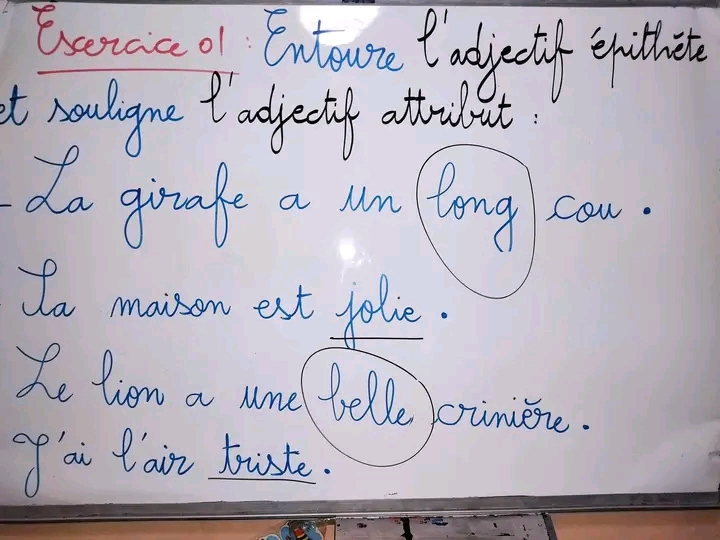 Exercice 01 : Entoure l'adjectif épithète
et souligne l'adjectif attribut :
- La girafe a un long cou .
- La maison est jolie .
Le lion a une belle crinière .
J'ai l'air triste .